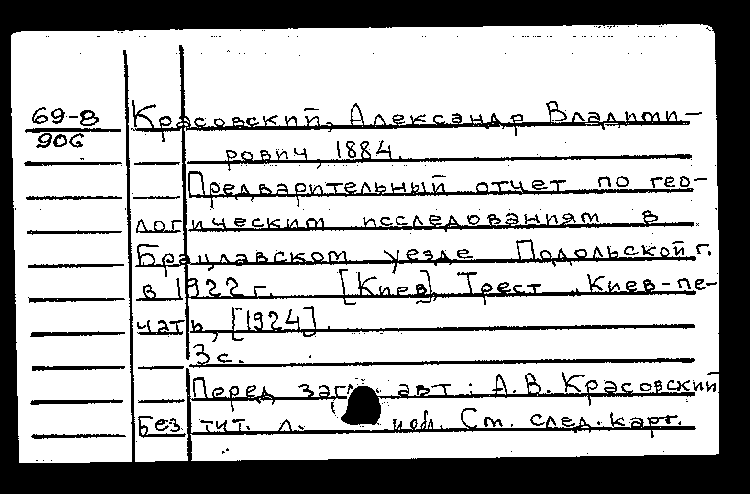 69-8 Красовский, Александр Владими-
906
рович, 1884.
Предварительный отчет по гео-
логическим исследованиям в
Брацлавском уезде Подольской г.
в 1922 г. [Киев], Трест "Киев-пе-
чать, [1924].
3 с.
Перед загл. авт.: А.В. Красовский
Без тит. л. и обл. См. след. карт.